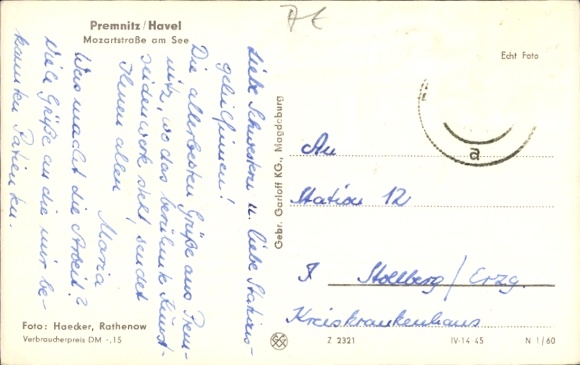 Premnitz/Havel
Mozartstraße am See
Liebe Schwestern u. liebe Stations-
gehilfinnen!
Die allerbesten Grüße aus Prem-
nitz, wo das berühmte Kunst-
seidenwerk steht, sendet
Ihnen allen
Maria
Was macht die Arbeit?
Viele Grüße an die mir be-
kannten Patienten.
Foto: Haecker, Rathenow
Verbraucherpreis DM -,15
Gebr. Garloff KG., Magdeburg
Echt Foto
a
An
Station 12
Stollberg/Erzg.
Kreiskrankenhaus
Z 2321
IV-14-45
N 1/60